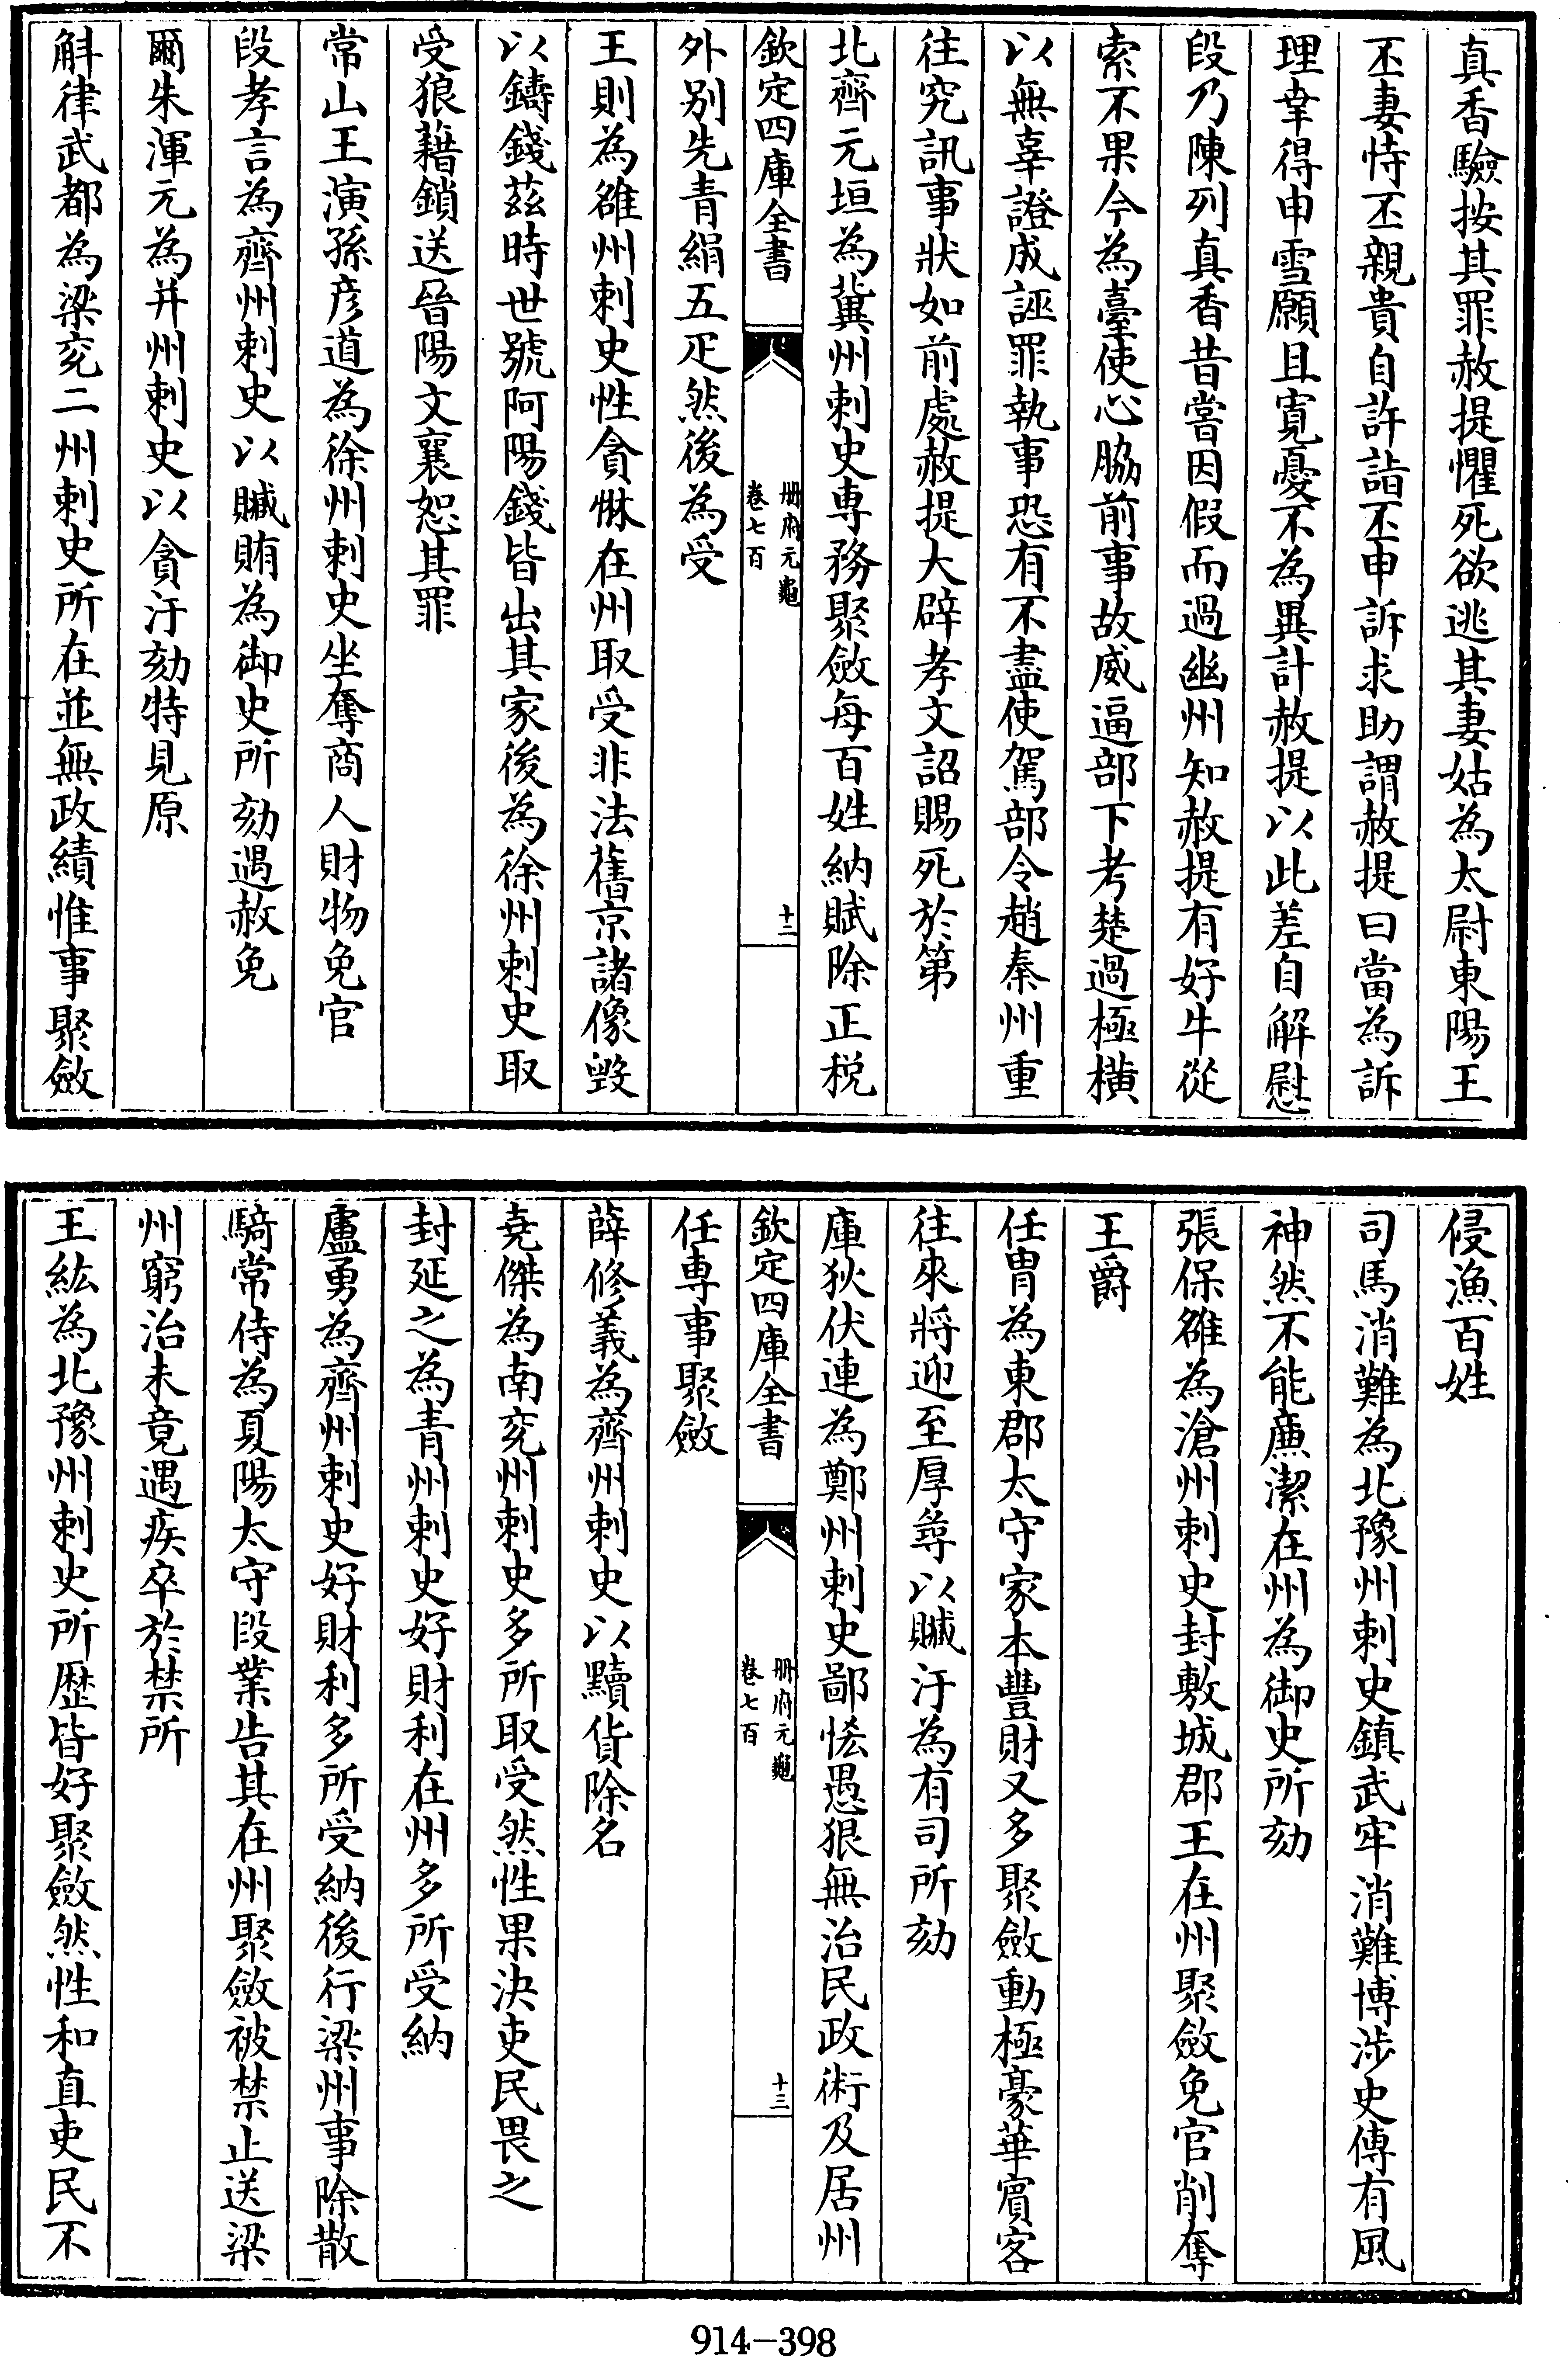 真香驗按其罪赦提懼死欲逃其妻姑為太尉東陽王
丕妻恃丕親貴自許詣丕申訴求助謂赦提曰當為訴
理幸得申雪願且寬憂不為異計赦提以此差自解慰
段乃陳列真香昔嘗因假而過幽州知赦提有好牛從
索不果今為臺使心脇前事故威逼部下考楚過極橫
以無辜證成誣罪執事恐有不盡使駕部令趙秦州重
往究訊事狀如前處赦提大辟孝文詔賜死於第
北齊元垣為冀州刺史専務聚斂每百姓納賦除正税
欽定四庫全書
冊府元龜
卷七百
十二
外别先青絹五疋然後為受
王則為雒州刺史性貪惏在州取受非法舊京諸像毀
以鑄錢茲時世號阿陽錢皆出其家後為徐州刺史取
受狼藉鎖送晉陽文襄恕其罪
常山王演孫彦道為徐州刺史坐奪商人財物免官
段孝言為齊州刺史以贓賄為御史所劾遇赦免
爾朱渾元為并州刺史以貪汙劾特見原
斛律武都為梁兗二州刺史所在並無政績惟事聚斂
侵漁百姓
司馬消難為北豫州刺史鎮武牢消難博涉史傳有風
神然不能廉潔在州為御史所劾
張保雒為滄州刺史封敷城郡王在州聚斂免官削奪
王爵
任胄為東郡太守家本豐財又多聚斂動極豪華賓客
往來將迎至厚尋以贓汙為有司所劾
庫狄伏連為鄭州刺史鄙恡愚狠無治民政術及居州
欽定四庫全書
冊府元龜
卷七百
十三
任専事聚斂
薛修義為齊州刺史以黷貨除名
堯傑為南兗州刺史多所取受然性果決吏民畏之
封延之為青州刺史好財利在州多所受納
盧勇為齊州刺史好財利多所受納後行梁州事除散
騎常侍為夏陽太守段業告其在州聚斂被禁止送梁
州窮治未竟遇疾卒於禁所
王紘為北豫州刺史所歷皆好聚斂然性和直吏民不
914-398